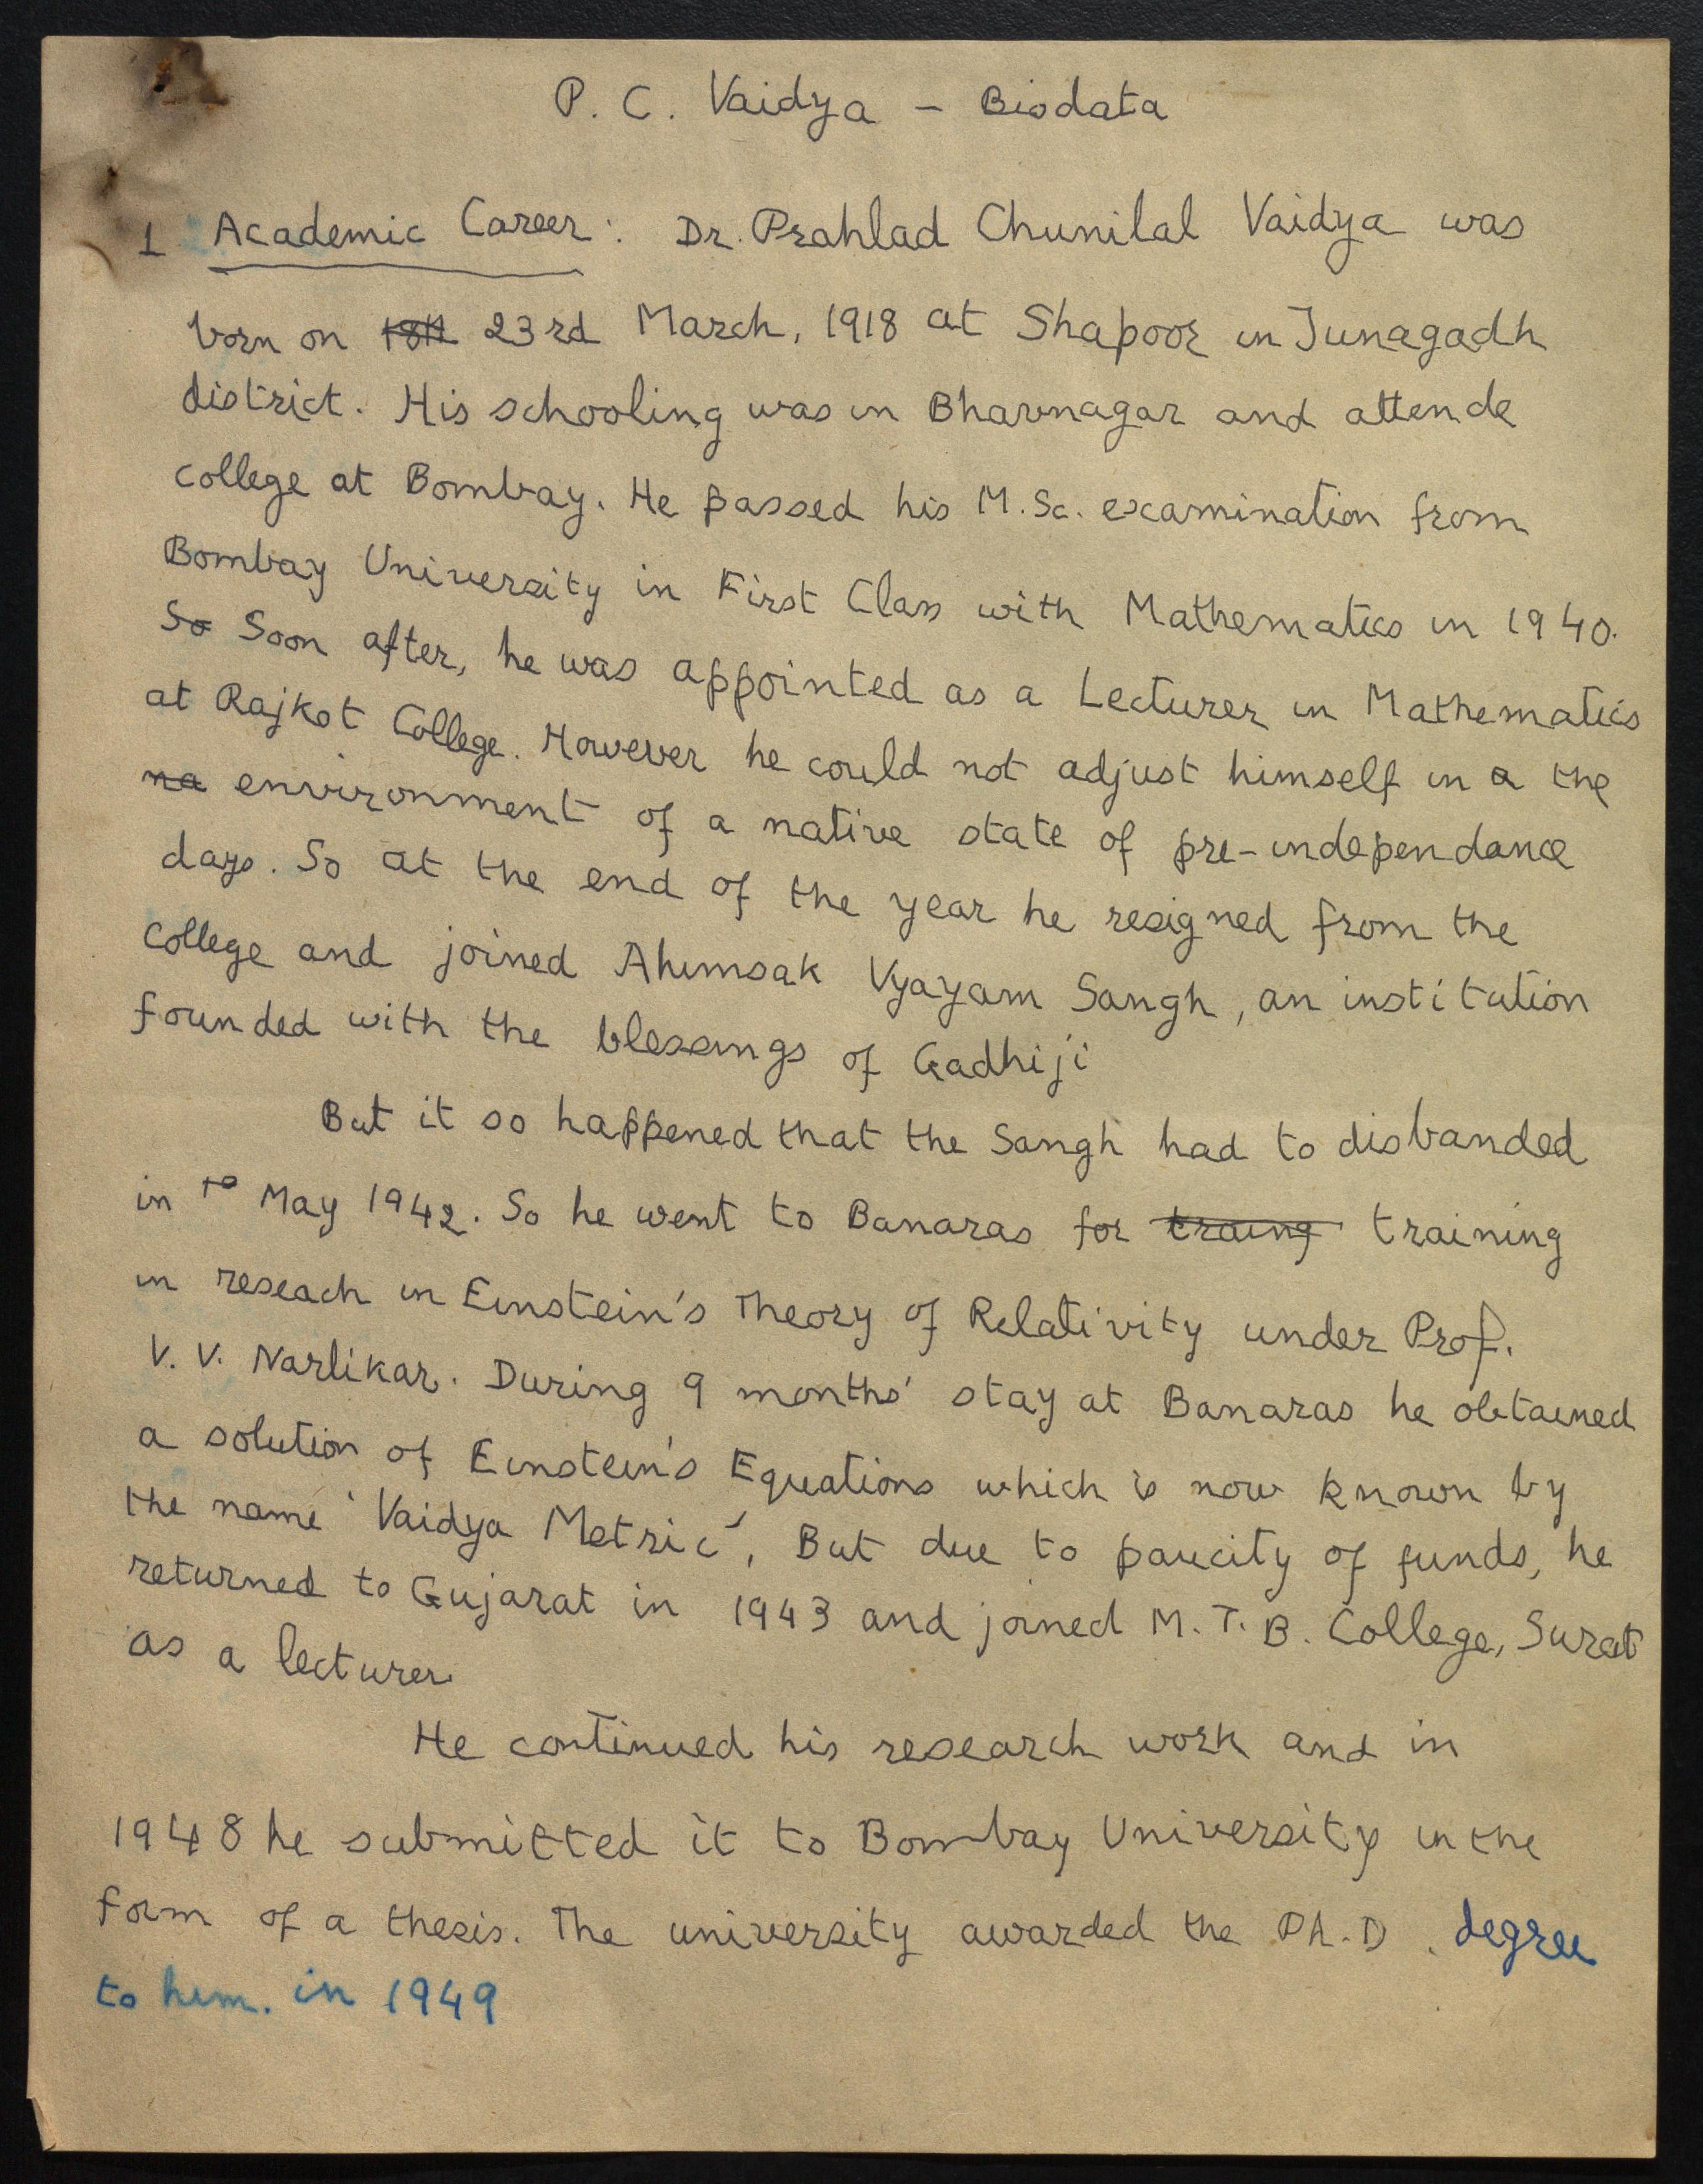 P. C. Vaidya - Biodata
1 Academic Career: Dr. Prahlad Chunilal Vaidya was
born on 23rd March, 1918 at Shapoor in Junagadh
district. His schooling was in Bhavnagar and attende
college at Bombay. He passed his M.Sc. examination from
Bombay University in First Class with Mathematics in 1940.
So Soon after, he was appointed as a Lecturer in Mathematics
at Rajkot College. However he could not adjust himself in a the
na environment of a native state of pre-independance
days. So at the end of the year he resigned from the
college and joined Ahimsak Vyayam Sangh, an institution
founded with the blessings of Gadhiji
But it so happened that the Sangh had to disbanded
in May 1942. So he went to Banaras for traing training
in reseach in Einstein's Theory of Relativity under Prof.
V. V. Narlikar. During 9 months' stay at Banaras he obtained
a solution of Einstein's Equations which is now known by
the name 'Vaidya Metric', But due to paucity of funds, he
returned to Gujarat in 1943 and joined M. T. B. College, Surat
as a lecturer
He continued his research work and in
1948 he submitted it to Bombay University in the
form of a thesis. The university awarded the Ph.D. degree
to him. in 1949